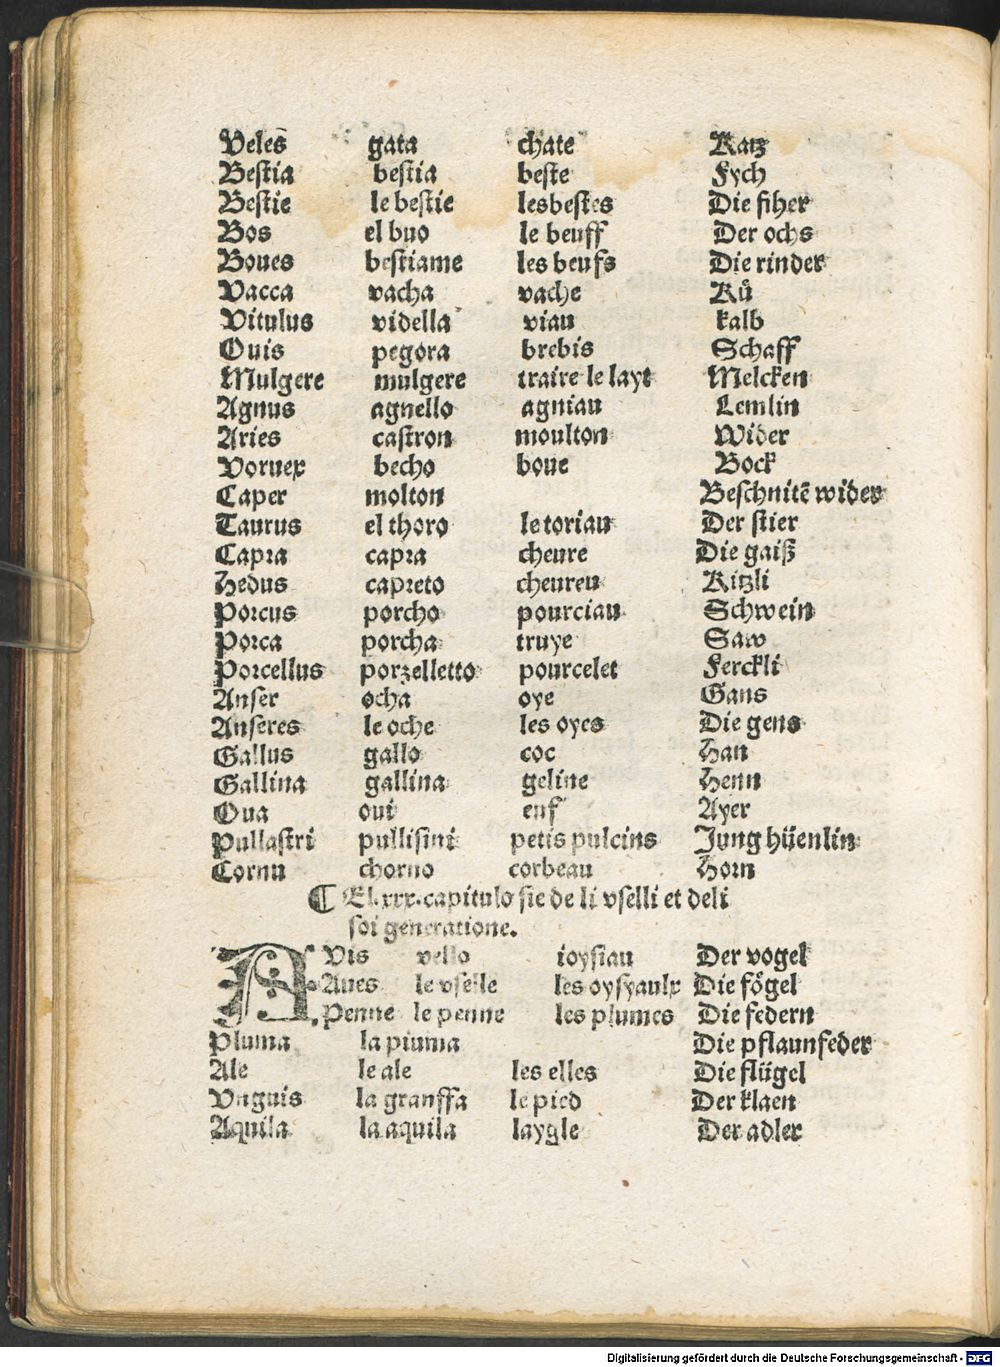 Veles̄ gata chate Katz
Bestia bestia beste Fych
Bestie le bestie les bestes Die fiher
Bos el buo le beuff Der ochs
Boues bestiame les beufs Die rinder
Vacca vacha vache Ků
Vitulus vidella viau kalb
Ouis pegora brebis Schaff
Mulgere mulgere traire le layt Melcken
Agnus agnello agniau Lemlin
Aries castron moulton Wider
Voruex becho boue Bock
Caper molton Beschnitē wider
Taurus el thoro le toriau Der stier
Capra capra cheure Die gaiß
Hedus capreto cheureu Kitzli
Porcus porcho pourciau Schwein
Porca porcha truye Saw
Porcellus porzelletto pourcelet Ferckli
Anser ocha oye Gans
Anseres le oche les oyes Die gens
Gallus gallo coc Han
Gallina gallina geline Henn
Oua oui euf Ayer
Pullastri pullisini petis pulcins Jung hüenlin
Cornu chorno corbeau Horn
¶ El .xxx. capitulo sie de li vselli et deli
soi generatione.
AVis vello ioysiau Der vogel
Aues le vselle les oysyaulx Die fögel
Penne le penne les plumes Die federn
Pluma la piuma Die pflaunfeder
Ale le ale les elles Die flügel
Vnguis la granffa le pied Der klaen
Aquila la aquila laygle Der adler
Digitalisierung gefördert durch die Deutsche Forschungsgemeinschaft - DFG